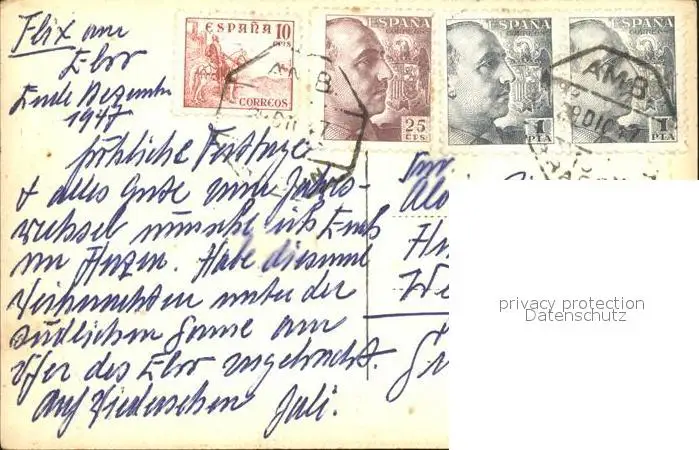 Flix am
Ebro
Ende Dezember
1947
ESPAÑA 10
CTS
CORREOS
ESPAÑA
CORREOS
25
CTS
ESPAÑA
CORREOS
1
PTA
ESPAÑA
CORREOS
1
PTA
AMB.
AMB
28 DIC 47
fröhliche Festtage
+ alles Gute zum Jahres-
wechsel wünsche ich Euch
von Herzen. Habe diesmal
Weihnachten unter der
südlichen Sonne am
Ufer des Ebro zugebracht.
Auf Wiedersehen Juli.
privacy protection
Datenschutz